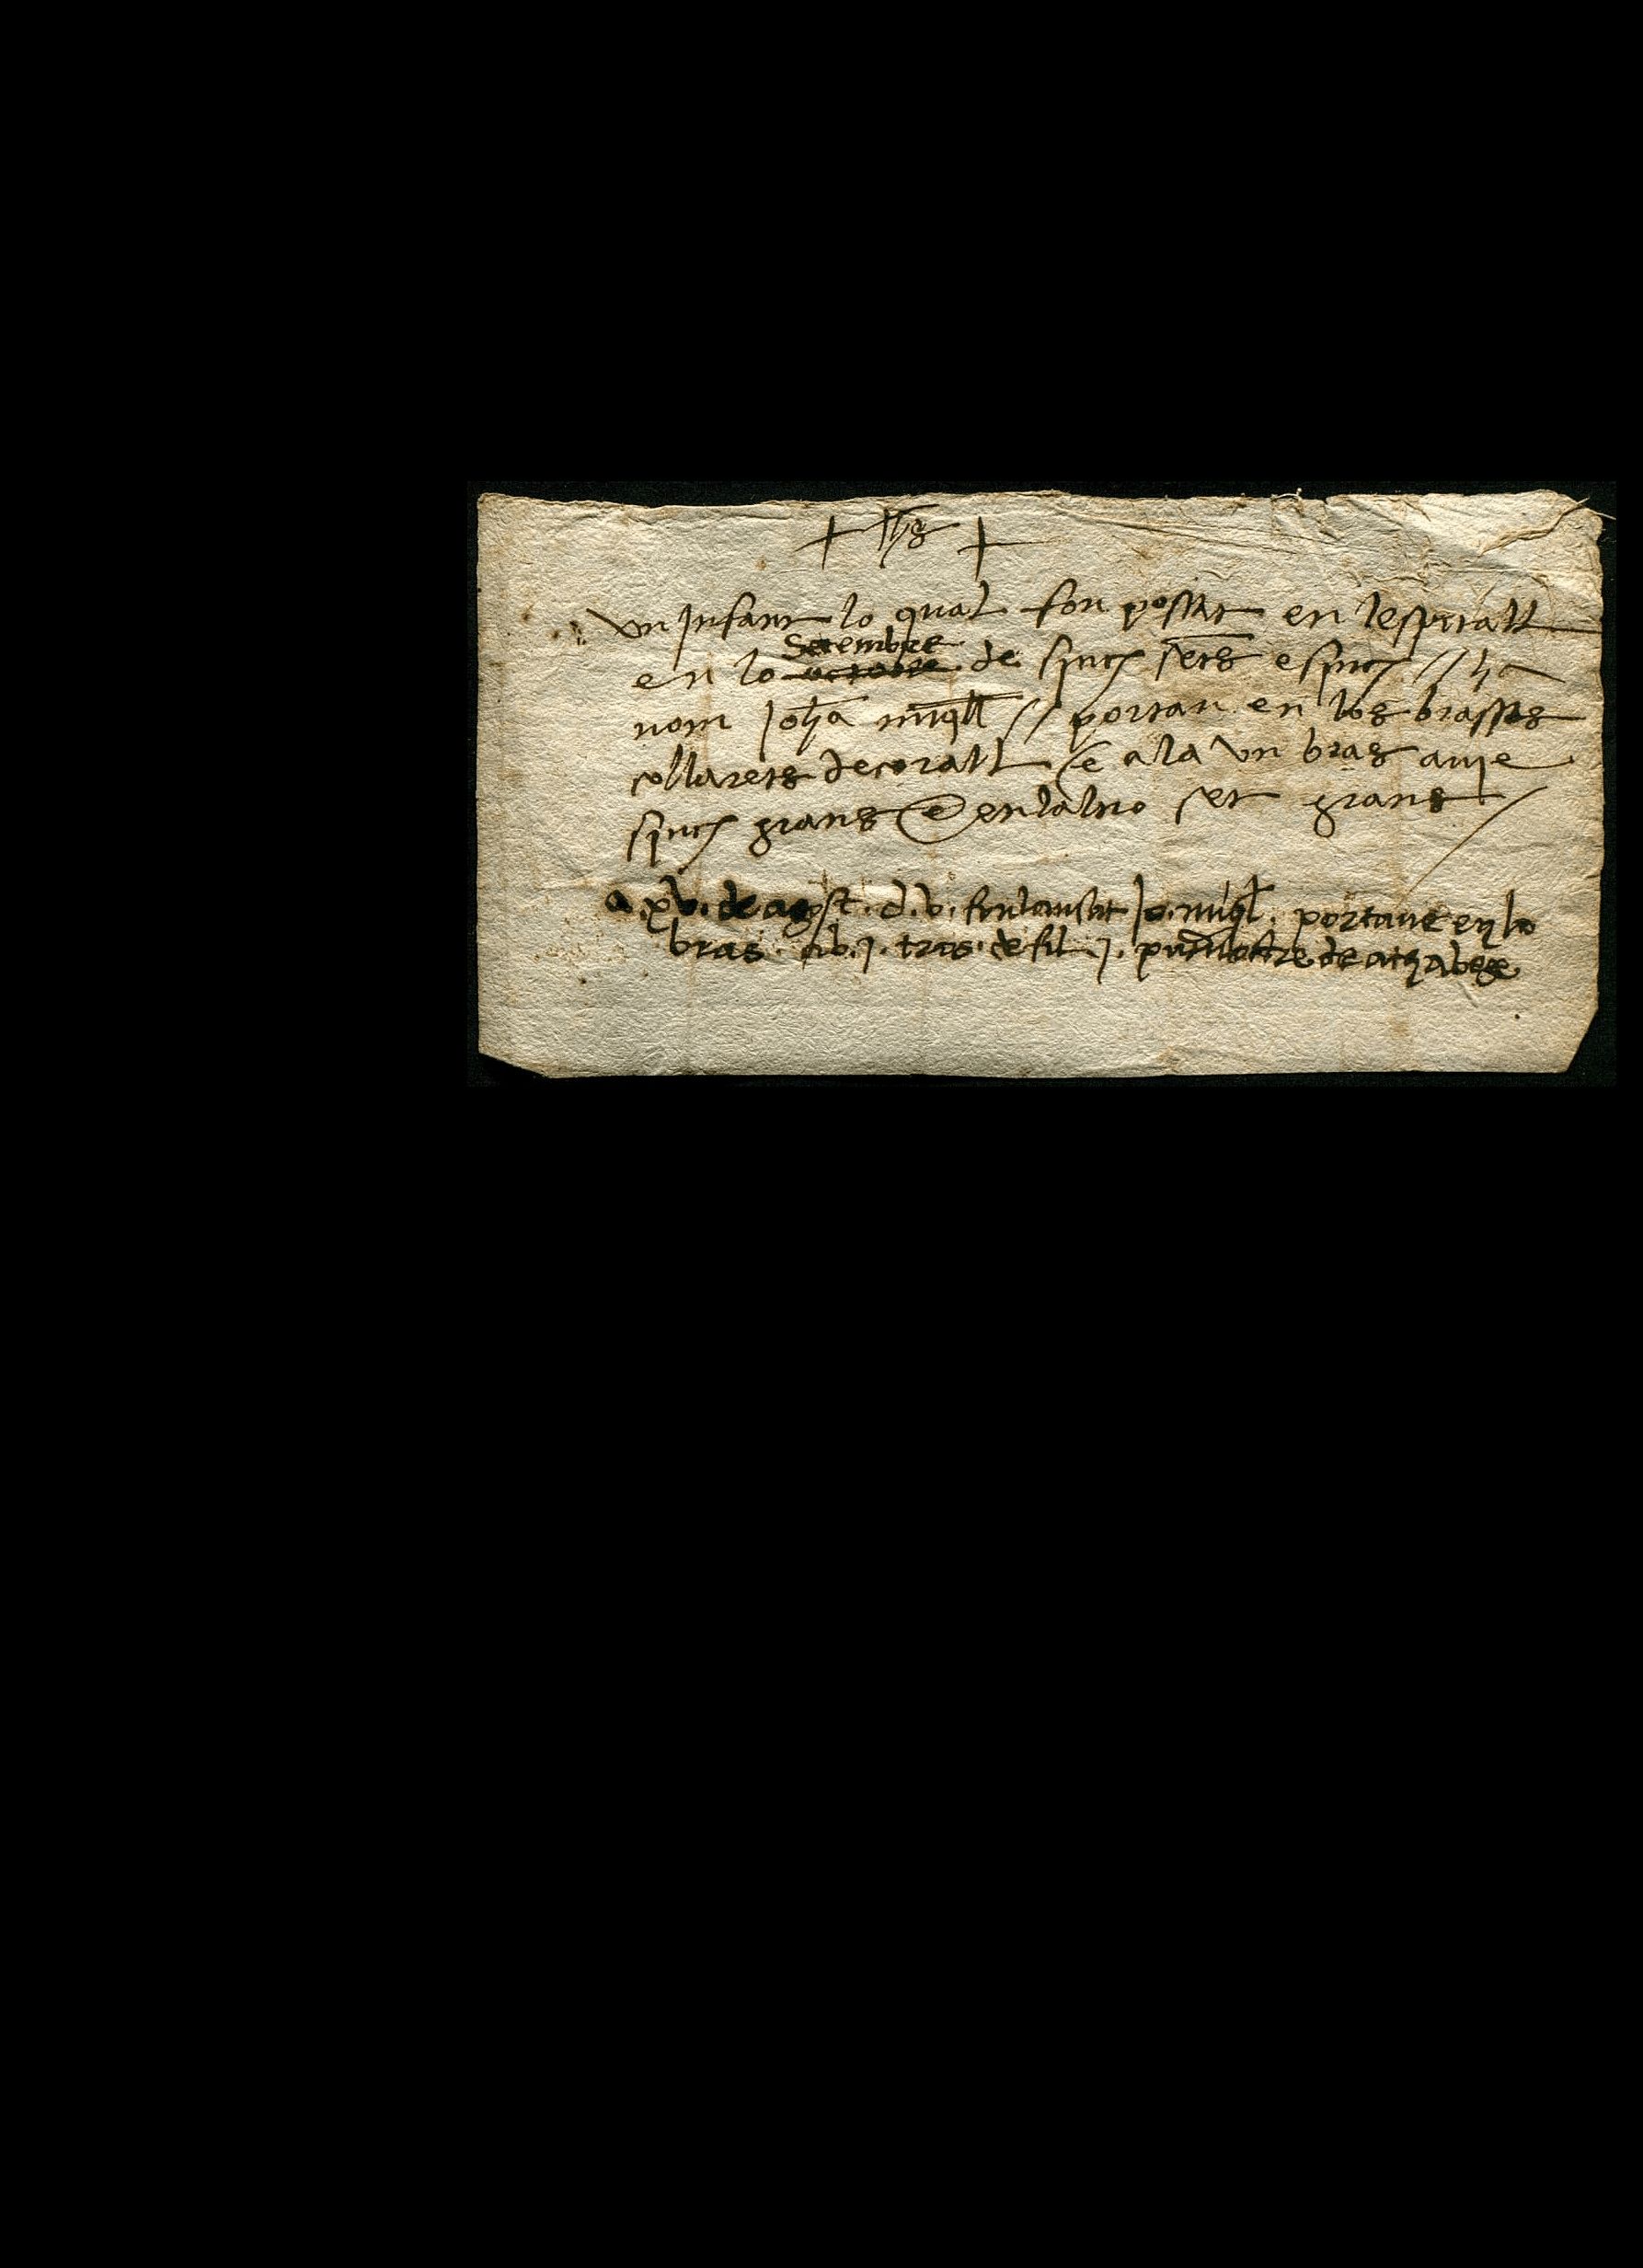 + yhs +
vn jnfant lo qual fon possat en lespitall
Setembre
en lo octobre de sinch sets e sinch // ha
nom Joha miqll // portan en los brassos
collarets de corall / e a la vn bras auje
sinch grans e en laltro set grans /
a .xv. de agost . d . v . fon lansat Jo. miql . portaue en lo
bras . ab .j. tros de fil .j. de atzabege